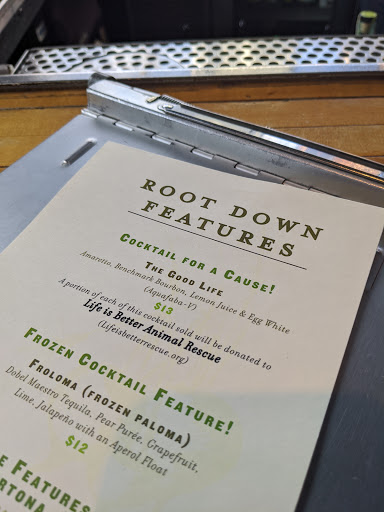 ROOT DOWN
FEATURES
COCKTAIL FOR A CAUSE!
THE GOOD LIFE
Amaretto, Benchmark Bourbon, Lemon Juice & Egg White
(Aquafaba-V)
$13
A portion of each of this cocktail sold will be donated to
Life is Better Animal Rescue
(Lifeisbetterrescue.org)
FROZEN COCKTAIL FEATURE!
FROLOMA (FROZEN PALOMA)
Dobel Maestro Tequila, Pear Purée, Grapefruit,
Lime, Jalapeño with an Aperol Float
$12
E FEATURES
RTONA